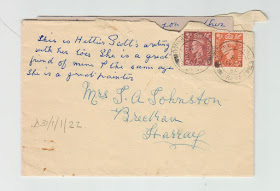 This is Hattie Scott's writing
with her toes She is a great
friend of mine & the same age
She is a great painter
Mrs J. A Johnston
Breckan
Harray
D30/1/1/22